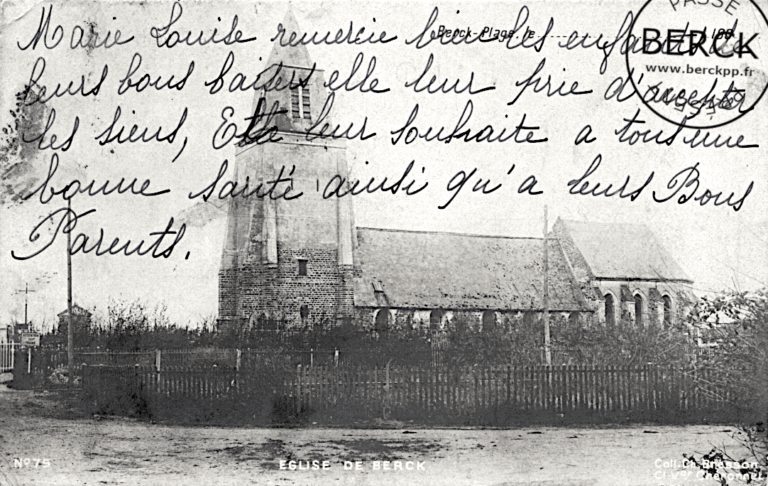 Marie Louise remercie bien les enfants de
leurs bons baisers elle leur prie d'accepter
les siens, Et leur souhaite a tous une
bonne santé ainsi qu'a leurs Bons
Parents.
Berck-Plage, le
PASSE
BERCK
www.berckpp.fr
Nº 75
EGLISE DE BERCK
Coll. Ch. Bresson